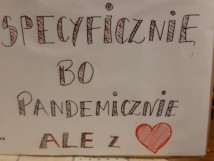 SPECYFICZNIĘ
BO
PANDEMICZNIE
ALE Z ❤